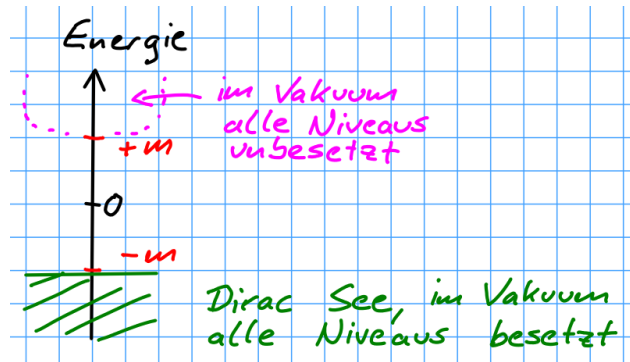 Energie
im Vakuum
alle Niveaus
unbesetzt
+m
0
-m
Dirac See, im Vakuum
alle Niveaus besetzt